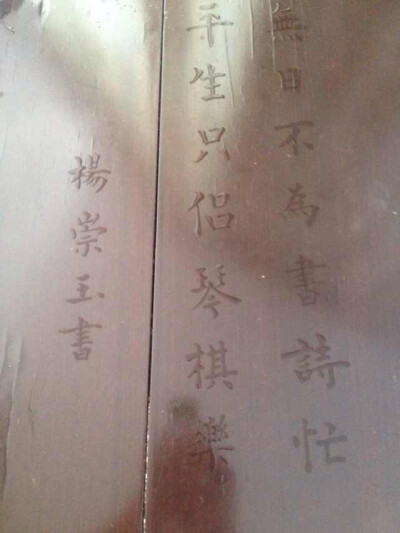 無日不為書詩忙
平生只侶琴棋樂
楊崇玉書